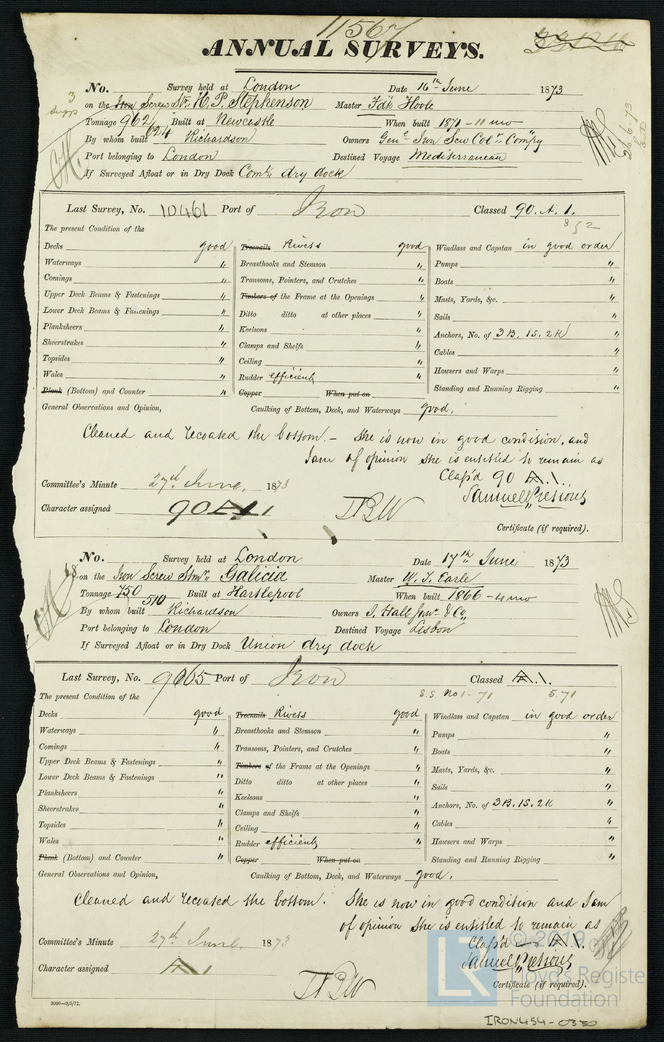 11567
ANNUAL SURVEYS.
No. Survey held at London Date 16th June 1873
on the Iron Screw Str. H. P. Stephenson Master Fdk Hoole
Tonnage 962/624 Built at Newcastle When built 1871 - 11 mo
By whom built Richardson Owners Genl. Iron Scw Colr. Compy
Port belonging to London Destined Voyage Mediterranean
If Surveyed Afloat or in Dry Dock Coml. dry dock
Last Survey, No. 10461 Port of Iron Classed 90. A. 1.
The present Condition of the
Decks good Treenails Rivets good Windlass and Capstan in good order
Waterways " Breasthooks and Stemson " Pumps "
Comings " Transoms, Pointers, and Crutches " Boats "
Upper Deck Beams & Fastenings " Timbers of the Frame at the Openings " Masts, Yards, &c. "
Lower Deck Beams & Fastenings " Ditto ditto at other places " Sails "
Planksheers " Keelsons " Anchors, No. of 3B. 1S. 2K "
Sheerstrakes " Clamps and Shelfs " Cables "
Topsides " Ceiling " Hawsers and Warps "
Wales " Rudder efficient Standing and Running Rigging "
Plank (Bottom) and Counter " Copper When put on
General Observations and Opinion, Caulking of Bottom, Deck, and Waterways good.
Cleaned and recoated the bottom. - She is now in good condition, and
I am of opinion she is entitled to remain as
Class'd 90 A.1.
Committee's Minute 27th June, 1873
Samuel Presious
Character assigned 90 A 1
Certificate (if required).
No. Survey held at London Date 17th June 1873
on the Iron Screw Stmr. Galicia Master W. T. Earle
Tonnage 750/510 Built at Hartlepool When built 1866 - 4 mo
By whom built Richardson Owners J. Hall Junr. & Co
Port belonging to London Destined Voyage Lisbon
If Surveyed Afloat or in Dry Dock Union dry dock
Last Survey, No. 9665 Port of Iron Classed A.1.
S.S. No 1 - 71 5.71
The present Condition of the
Decks good Treenails Rivets good Windlass and Capstan in good order
Waterways " Breasthooks and Stemson " Pumps "
Comings " Transoms, Pointers, and Crutches " Boats "
Upper Deck Beams & Fastenings " Timbers of the Frame at the Openings " Masts, Yards, &c. "
Lower Deck Beams & Fastenings " Ditto ditto at other places " Sails "
Planksheers " Keelsons " Anchors, No. of 3B. 1S. 2K "
Sheerstrakes " Clamps and Shelfs " Cables "
Topsides " Ceiling " Hawsers and Warps "
Wales " Rudder efficient Standing and Running Rigging "
Plank (Bottom) and Counter " Copper When put on
General Observations and Opinion, Caulking of Bottom, Deck, and Waterways good.
Cleaned and recoated the bottom. She is now in good condition and I am
of opinion she is entitled to remain as
Class'd A.1.
Committee's Minute 27th June 1873
Samuel Presious
Character assigned A 1
Certificate (if required).
3000—9/5/72.
© 2019
Lloyd's Register
Foundation
IRON454-0330